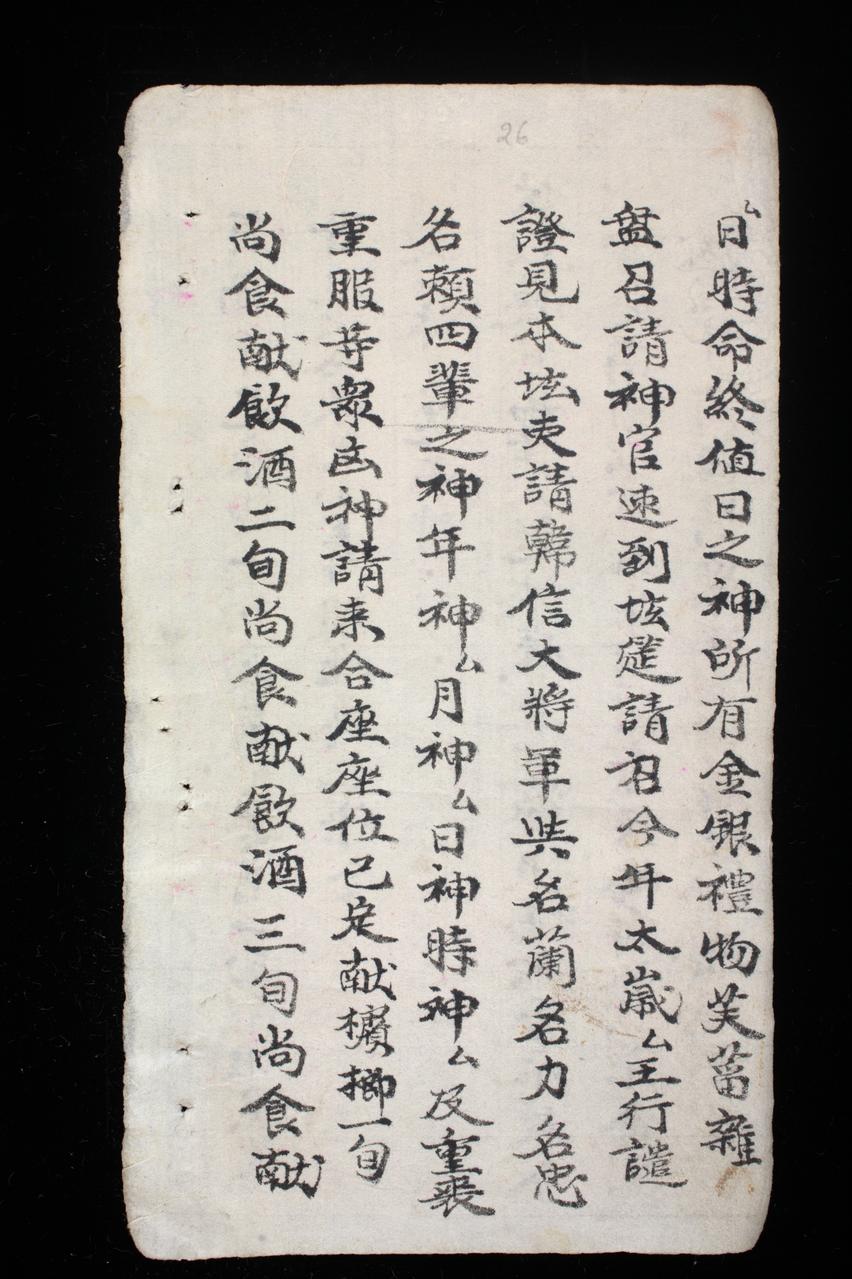 26
厶日時命終值日之神所有金銀禮物芙蒥雜
盘召請神官速到坛筵請召今年太歲厶王行譴
證見本坛叓請韓信大將軍與名蘭名力名忠
名賴四輩之神年神厶月神厶日神時神厶及重喪
重服等衆凶神請来合座座位已定献檳榔一旬
尚食献飲酒二旬尚食献飲酒三旬尚食献